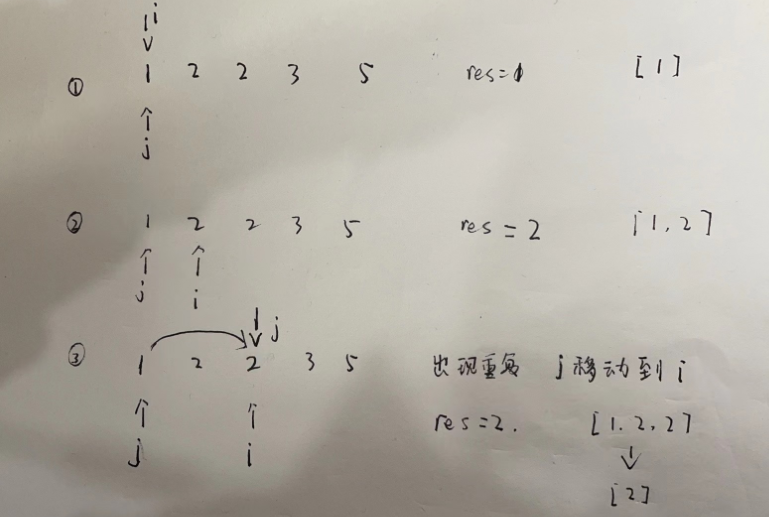 i
① 1 2 2 3 5 res=1 [1]
j
② 1 2 2 3 5 res=2 [1,2]
j i
j
③ 1 2 2 3 5 出现重复 j移动到i
res=2. [1.2,2]
j i
[2]